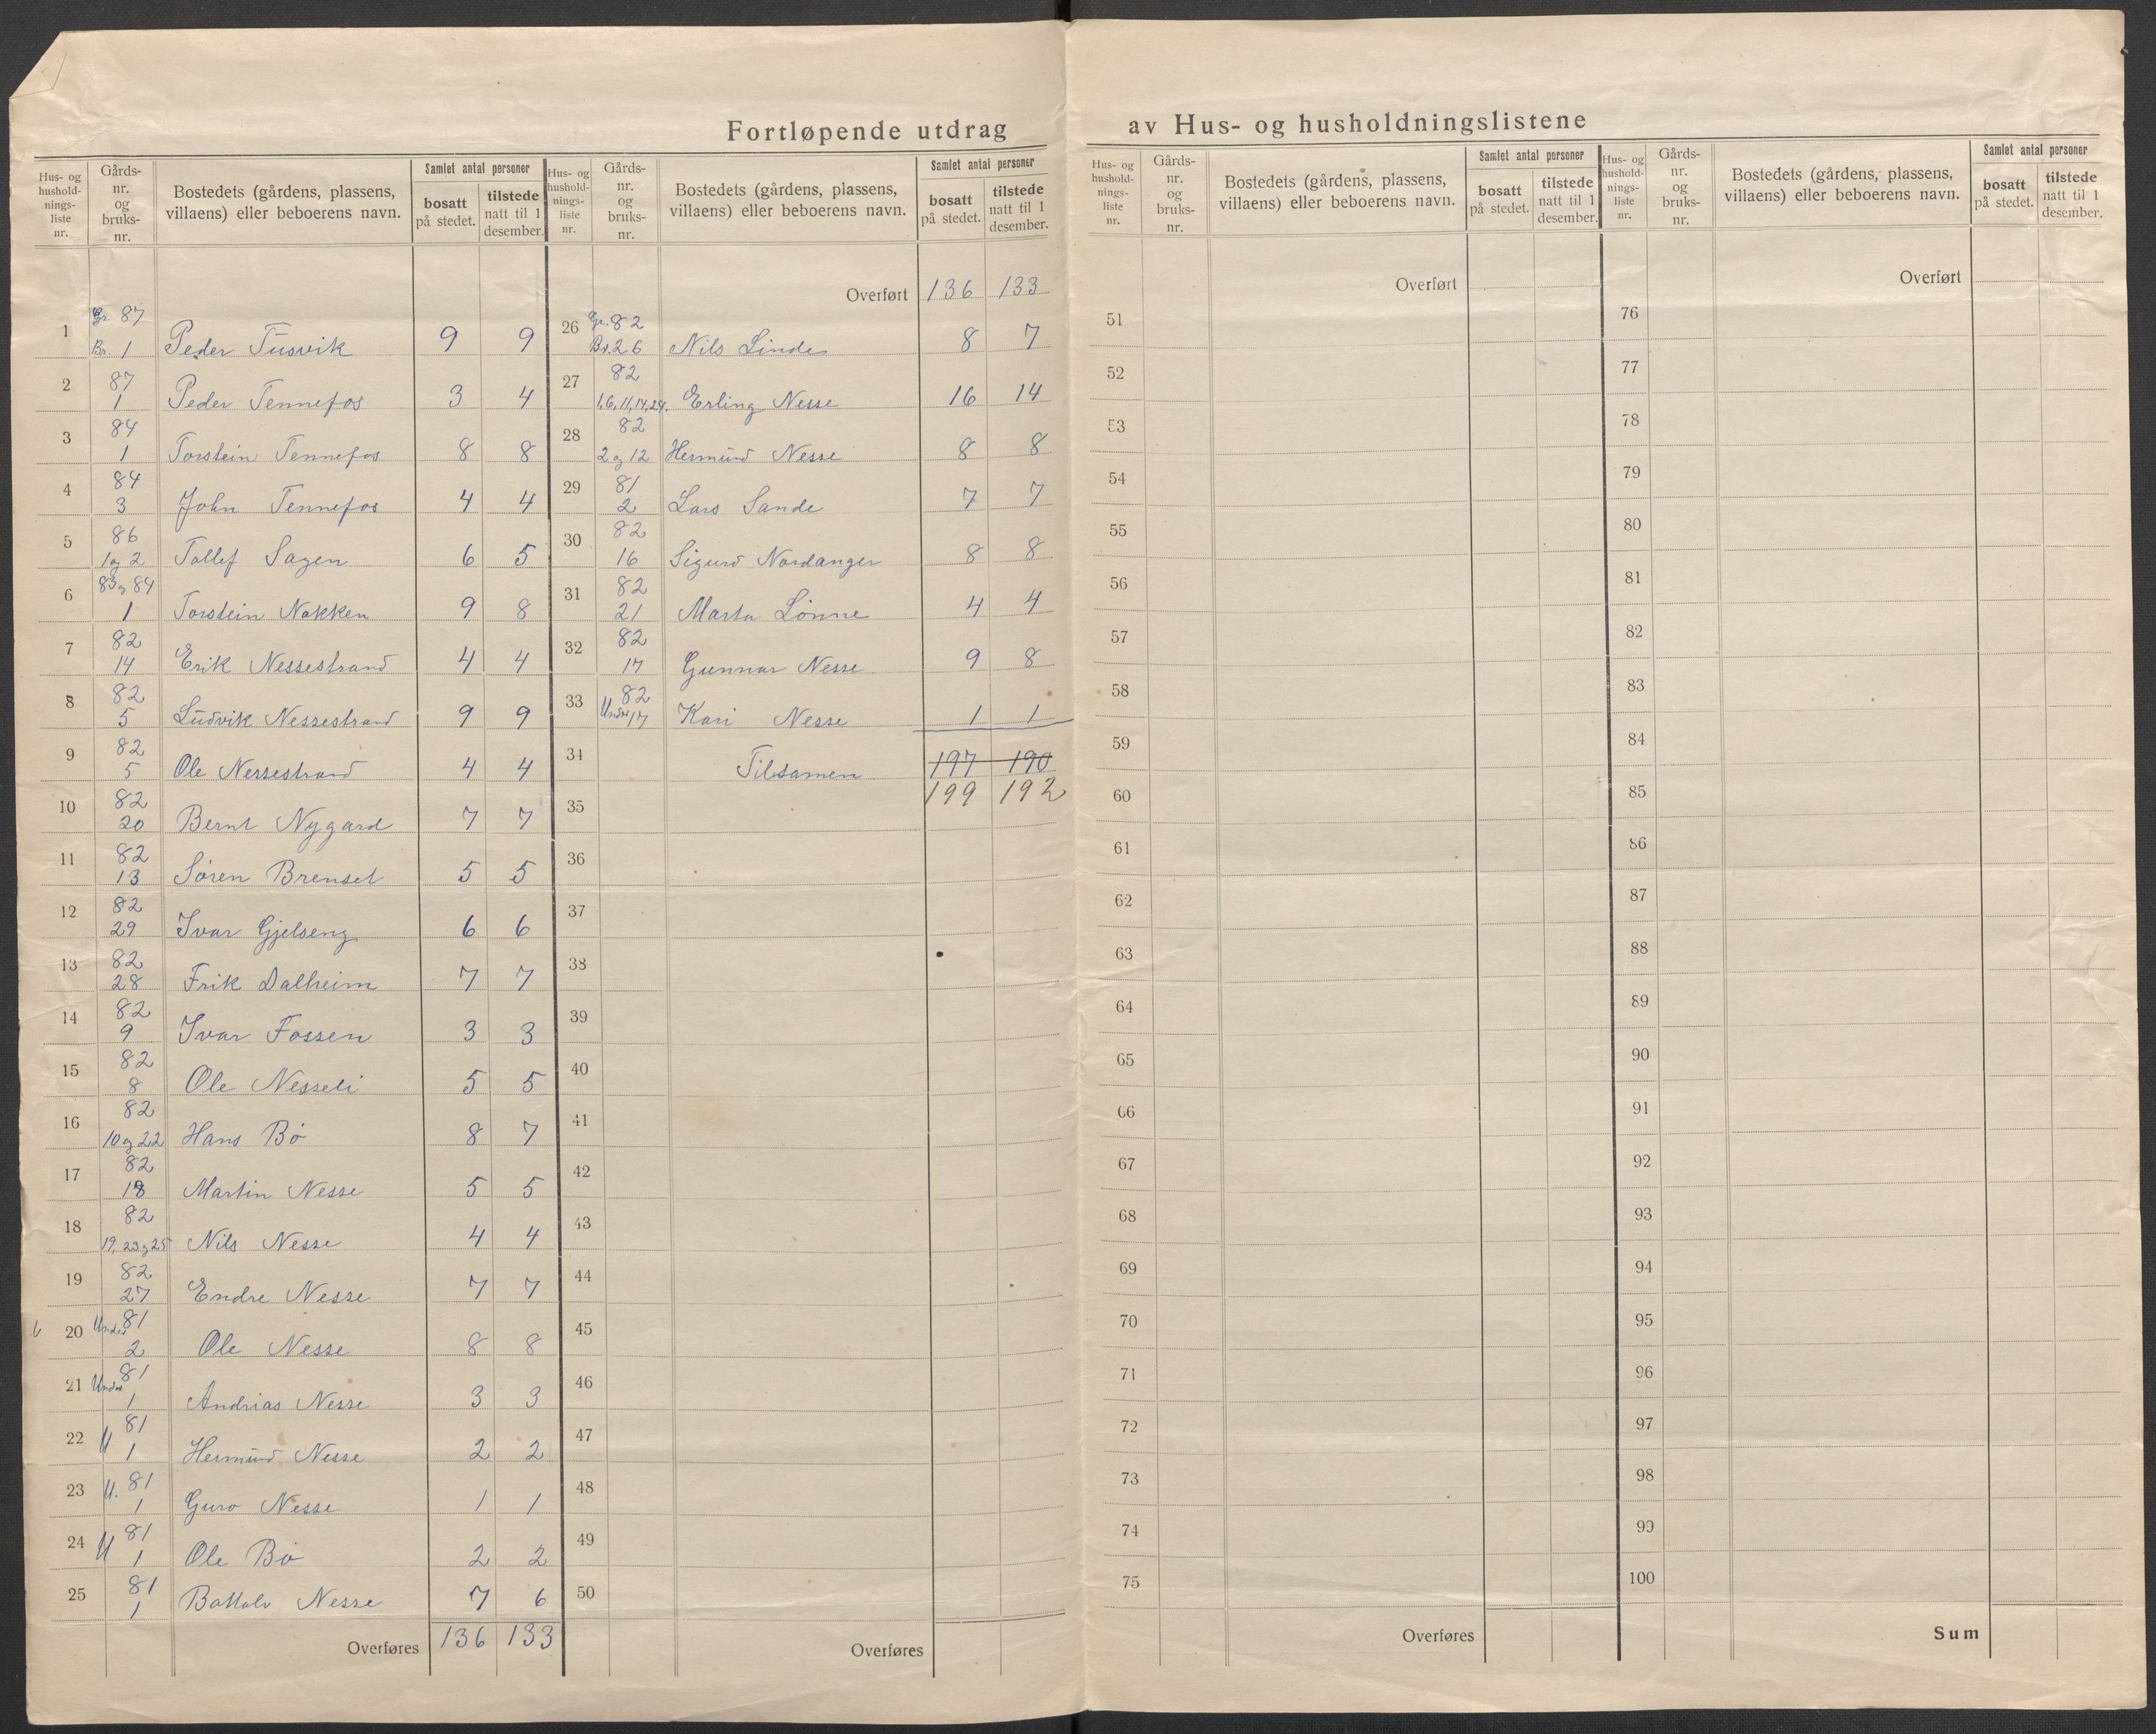 Fortløpende utdrag av Hus- og husholdningslistene
Hus- og hushold-nings-liste nr. | Gårds-nr. og bruks-nr. | Bostedets (gårdens, plassens, villaens) eller beboerens navn. | Samlet antal personer | bosatt på stedet. | tilstede natt til 1 desember.
1 | Gr. 87 Br. 1 | Peder Tusvik | 9 | 9
2 | 87 1 | Peder Tennefos | 3 | 4
3 | 84 1 | Torstein Tennefos | 8 | 8
4 | 84 3 | John Tennefos | 4 | 4
5 | 86 1 og 2 | Tollef Sagen | 6 | 5
6 | 83 og 84 1 | Torstein Nakken | 9 | 8
7 | 82 14 | Erik Nessestrand | 4 | 4
8 | 82 5 | Ludvik Nessestrand | 9 | 9
9 | 82 5 | Ole Nessestrand | 4 | 4
10 | 82 20 | Bernt Nygard | 7 | 7
11 | 82 13 | Søren Brenset | 5 | 5
12 | 82 29 | Ivar Gjelseng | 6 | 6
13 | 82 28 | Erik Dalheim | 7 | 7
14 | 82 9 | Ivar Fossen | 3 | 3
15 | 82 8 | Ole Nesseli | 5 | 5
16 | 82 10 og 22 | Hans Bø | 8 | 7
17 | 82 18 | Martin Nesse | 5 | 5
18 | 82 19, 23 og 25 | Nils Nesse | 4 | 4
19 | 82 27 | Endre Nesse | 7 | 7
20 | Under 81 2 | Ole Nesse | 8 | 8
21 | Under 81 1 | Andrias Nesse | 3 | 3
22 | U 81 1 | Hermund Nesse | 2 | 2
23 | U. 81 1 | Guro Nesse | 1 | 1
24 | U 81 1 | Ole Bø | 2 | 2
25 | 81 1 | Bottolv Nesse | 7 | 6
Overføres | 136 | 133
Hus- og hushold-nings-liste nr. | Gårds-nr. og bruks-nr. | Bostedets (gårdens, plassens, villaens) eller beboerens navn. | Samlet antal personer | bosatt på stedet. | tilstede natt til 1 desember.
Overført | 136 | 133
26 | Gr. 82 Br. 26 | Nils Linde | 8 | 7
27 | 82 1,6,11,14,24. | Erling Nesse | 16 | 14
28 | 82 2 og 12 | Hermund Nesse | 8 | 8
29 | 81 2 | Lars Sande | 7 | 7
30 | 82 16 | Sigurd Nordanger | 8 | 8
31 | 82 21 | Marta Lønne | 4 | 4
32 | 82 17 | Gunnar Nesse | 9 | 8
33 | 82 Under 17 | Kari Nesse | 1 | 1
34 | Tilsamen | 197 | 190
199 | 192
35
36
37
38
39
40
41
42
43
44
45
46
47
48
49
50
Overføres
Hus- og hushold-nings-liste nr. | Gårds-nr. og bruks-nr. | Bostedets (gårdens, plassens, villaens) eller beboerens navn. | Samlet antal personer | bosatt på stedet. | tilstede natt til 1 desember.
Overført
51
52
53
54
55
56
57
58
59
60
61
62
63
64
65
66
67
68
69
70
71
72
73
74
75
Overføres
Hus- og hushold-nings-liste nr. | Gårds-nr. og bruks-nr. | Bostedets (gårdens, plassens, villaens) eller beboerens navn. | Samlet antal personer | bosatt på stedet. | tilstede natt til 1 desember.
Overført
76
77
78
79
80
81
82
83
84
85
86
87
88
89
90
91
92
93
94
95
96
97
98
99
100
Sum